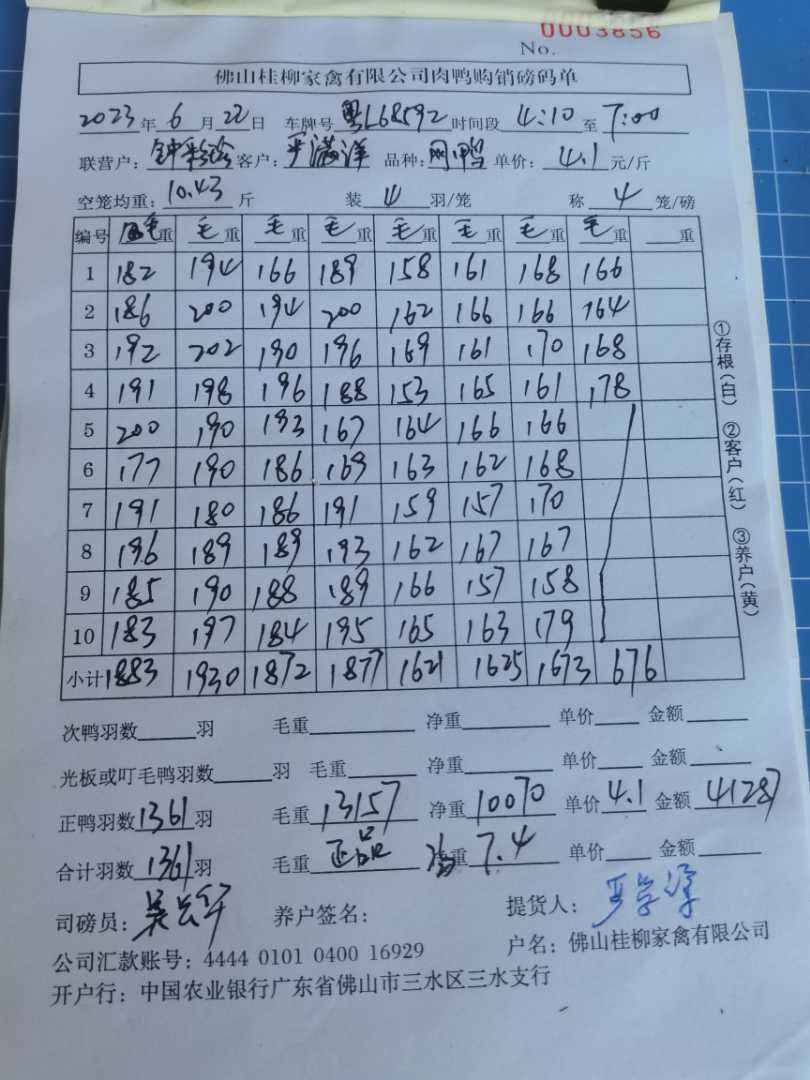 0003856
No.
佛山桂柳家禽有限公司肉鸭购销磅码单
2023年6月22日 车牌号 粤L68592 时间段 4:10 至 7:00
联营户：钟彩珍 客户：严满洋 品种：网鸭 单价：4.1 元/斤
空笼均重：10.43 斤 装 4 羽/笼 称 4 笼/磅
编号 毛重 毛重 毛重 毛重 毛重 毛重 毛重 毛重 重
1 182 194 166 189 158 161 168 166
2 186 200 194 200 162 166 166 164
3 192 202 190 196 169 161 170 168
4 191 198 196 188 153 165 161 178
5 200 190 193 167 164 166 166
6 177 190 186 169 163 162 168
7 191 180 186 191 159 157 170
8 196 189 189 193 162 167 167
9 185 190 188 189 166 157 158
10 183 197 184 195 165 163 179
小计 1883 1930 1872 1877 1621 1625 1673 676
①存根（白） ②客户（红） ③养户（黄）
次鸭羽数 羽 毛重 净重 单价 金额
光板或叮毛鸭羽数 羽 毛重 净重 单价 金额
正鸭羽数 1361 羽 毛重 13157 净重 10070 单价 4.1 金额 41287
合计羽数 1361 羽 毛重 正品 重 7.4 单价 金额
司磅员： 养户签名： 提货人：
公司汇款账号：4444 0101 0400 16929 户名：佛山桂柳家禽有限公司
开户行：中国农业银行广东省佛山市三水区三水支行